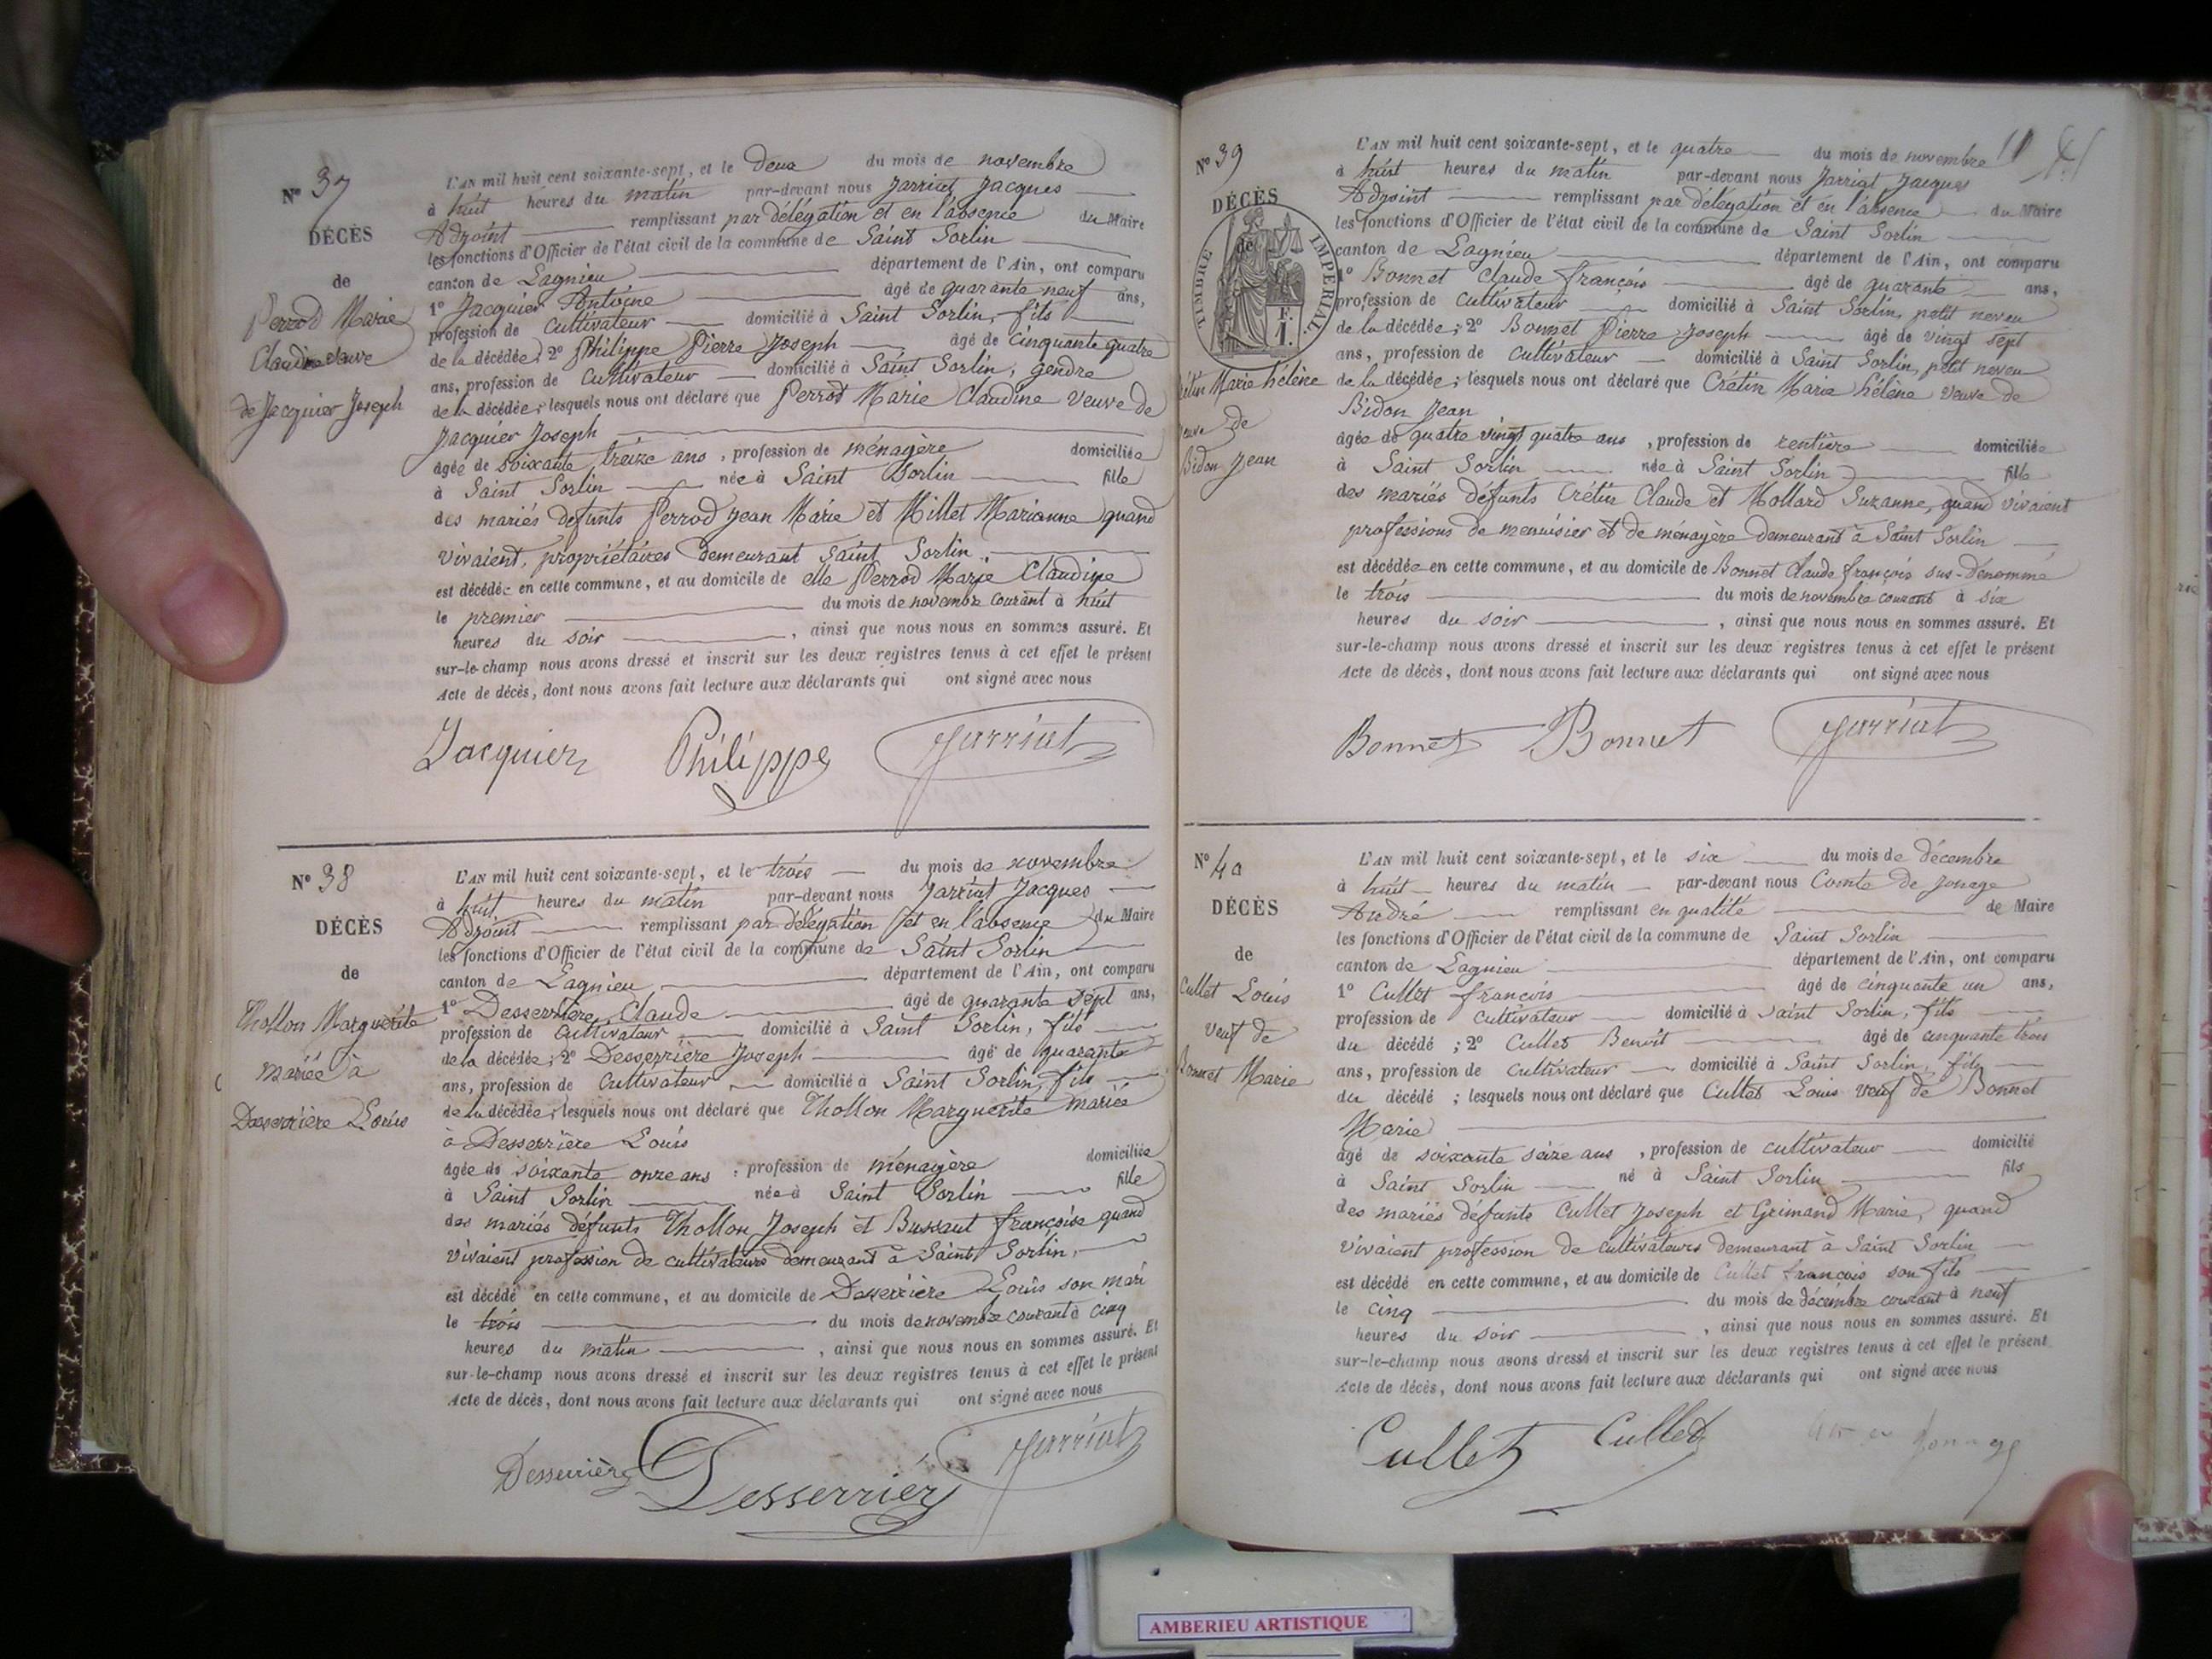 N° 37
DÉCÈS
de
Perrod Marie
Claudine veuve
de Jacquier Joseph
L'AN mil huit cent soixante-sept, et le deux du mois de novembre
à huit heures du matin par-devant nous Jarriat Jacques
Adjoint remplissant par délégation et en l'absence du Maire
les fonctions d'Officier de l'état civil de la commune de Saint Sorlin
canton de Lagnieu département de l'Ain, ont comparu
1° Jacquier Antoine âgé de quarante neuf ans,
profession de cultivateur domicilié à Saint Sorlin, fils
de la décédée; 2° Philippe Pierre Joseph âgé de cinquante quatre
ans, profession de cultivateur domicilié à Saint Sorlin, gendre
de la décédée; lesquels nous ont déclaré que Perrod Marie Claudine veuve de
Jacquier Joseph
âgée de soixante treize ans, profession de ménagère domiciliée
à Saint Sorlin née à Saint Sorlin fille
des mariés défunts Perrod Jean Marie et Millet Marianne quand
vivaient, propriétaires demeurant Saint Sorlin.
est décédée en cette commune, et au domicile de elle Perrod Marie Claudine
le premier du mois de novembre courant à huit
heures du soir, ainsi que nous nous en sommes assuré. Et
sur-le-champ nous avons dressé et inscrit sur les deux registres tenus à cet effet le présent
Acte de décès, dont nous avons fait lecture aux déclarants qui ont signé avec nous
Jacquier Philippe Jarriat
N° 38
DÉCÈS
de
Thollon Marguerite
mariée à
Desserrière Louis
L'AN mil huit cent soixante-sept, et le trois du mois de novembre
à huit heures du matin par-devant nous Jarriat Jacques
Adjoint remplissant par délégation et en l'absence du Maire
les fonctions d'Officier de l'état civil de la commune de Saint Sorlin
canton de Lagnieu, département de l'Ain, ont comparu
1° Desserrière Claude âgé de quarante sept ans,
profession de cultivateur domicilié à Saint Sorlin, fils
de la décédée; 2° Desserrière Joseph âgé de quarante
ans, profession de cultivateur domicilié à Saint Sorlin, fils
de la décédée; lesquels nous ont déclaré que Thollon Marguerite mariée
à Desserrière Louis
âgée de soixante onze ans : profession de ménagère domiciliée
à Saint Sorlin née à Saint Sorlin fille
des mariés défunts Thollon Joseph et Bussaut françoise quand
vivaient profession de cultivateurs demeurant à Saint Sorlin,
est décédé en cette commune, et au domicile de Desserrière Louis son mari
le trois du mois de novembre courant à cinq
heures du matin, ainsi que nous nous en sommes assuré. Et
sur-le-champ nous avons dressé et inscrit sur les deux registres tenus à cet effet le présent
Acte de décès, dont nous avons fait lecture aux déclarants qui ont signé avec nous
Desserrière Desserrière Jarriat
11
N° 39
DÉCÈS
de
TIMBRE IMPERIAL
F. 1.
Crétin Marie hélène
veuve de
Bidon Jean
L'AN mil huit cent soixante-sept, et le quatre du mois de novembre
à huit heures du matin par-devant nous Jarriat Jacques
Adjoint remplissant par délégation et en l'absence du Maire
les fonctions d'Officier de l'état civil de la commune de Saint Sorlin
canton de Lagnieu département de l'Ain, ont comparu
1° Bonnet Claude françois âgé de quarante ans,
profession de cultivateur domicilié à Saint Sorlin, petit neveu
de la décédée; 2° Bonnet Pierre Joseph âgé de vingt sept
ans, profession de cultivateur domicilié à Saint Sorlin, petit neveu
de la décédée; lesquels nous ont déclaré que Crétin Marie hélène veuve de
Bidon Jean
âgée de quatre vingt quatre ans, profession de rentière domiciliée
à Saint Sorlin née à Saint Sorlin fille
des mariés défunts Crétin Claude et Mollard Suzanne, quand vivaient
professions de menuisier et de ménagère demeurant à Saint Sorlin
est décédée en cette commune, et au domicile de Bonnet Claude françois sus-dénommé
le trois du mois de novembre courant à six
heures du soir, ainsi que nous nous en sommes assuré. Et
sur-le-champ nous avons dressé et inscrit sur les deux registres tenus à cet effet le présent
Acte de décès, dont nous avons fait lecture aux déclarants qui ont signé avec nous
Bonnet Bonnet Jarriat
N° 40
DÉCÈS
de
Cullet Louis
veuf de
Bonnet Marie
L'AN mil huit cent soixante-sept, et le six du mois de décembre
à huit heures du matin par-devant nous Comte de Jonage
André remplissant en qualité de Maire
les fonctions d'Officier de l'état civil de la commune de Saint Sorlin
canton de Lagnieu département de l'Ain, ont comparu
1° Cullet françois âgé de cinquante un ans,
profession de cultivateur domicilié à Saint Sorlin, fils
du décédé ; 2° Cullet Benoît âgé de cinquante trois
ans, profession de cultivateur domicilié à Saint Sorlin, fils
du décédé ; lesquels nous ont déclaré que Cullet Louis veuf de Bonnet
Marie
âgé de soixante seize ans, profession de cultivateur domicilié
à Saint Sorlin né à Saint Sorlin fils
des mariés défunts Cullet Joseph et Grimand Marie, quand
vivaient profession de cultivateurs demeurant à Saint Sorlin
est décédé en cette commune, et au domicile de Cullet françois son fils
le cinq du mois de décembre courant à neuf
heures du soir, ainsi que nous nous en sommes assuré. Et
sur-le-champ nous avons dressé et inscrit sur les deux registres tenus à cet effet le présent
Acte de décès, dont nous avons fait lecture aux déclarants qui ont signé avec nous
Cullet Cullet Jonage
AMBERIEU ARTISTIQUE